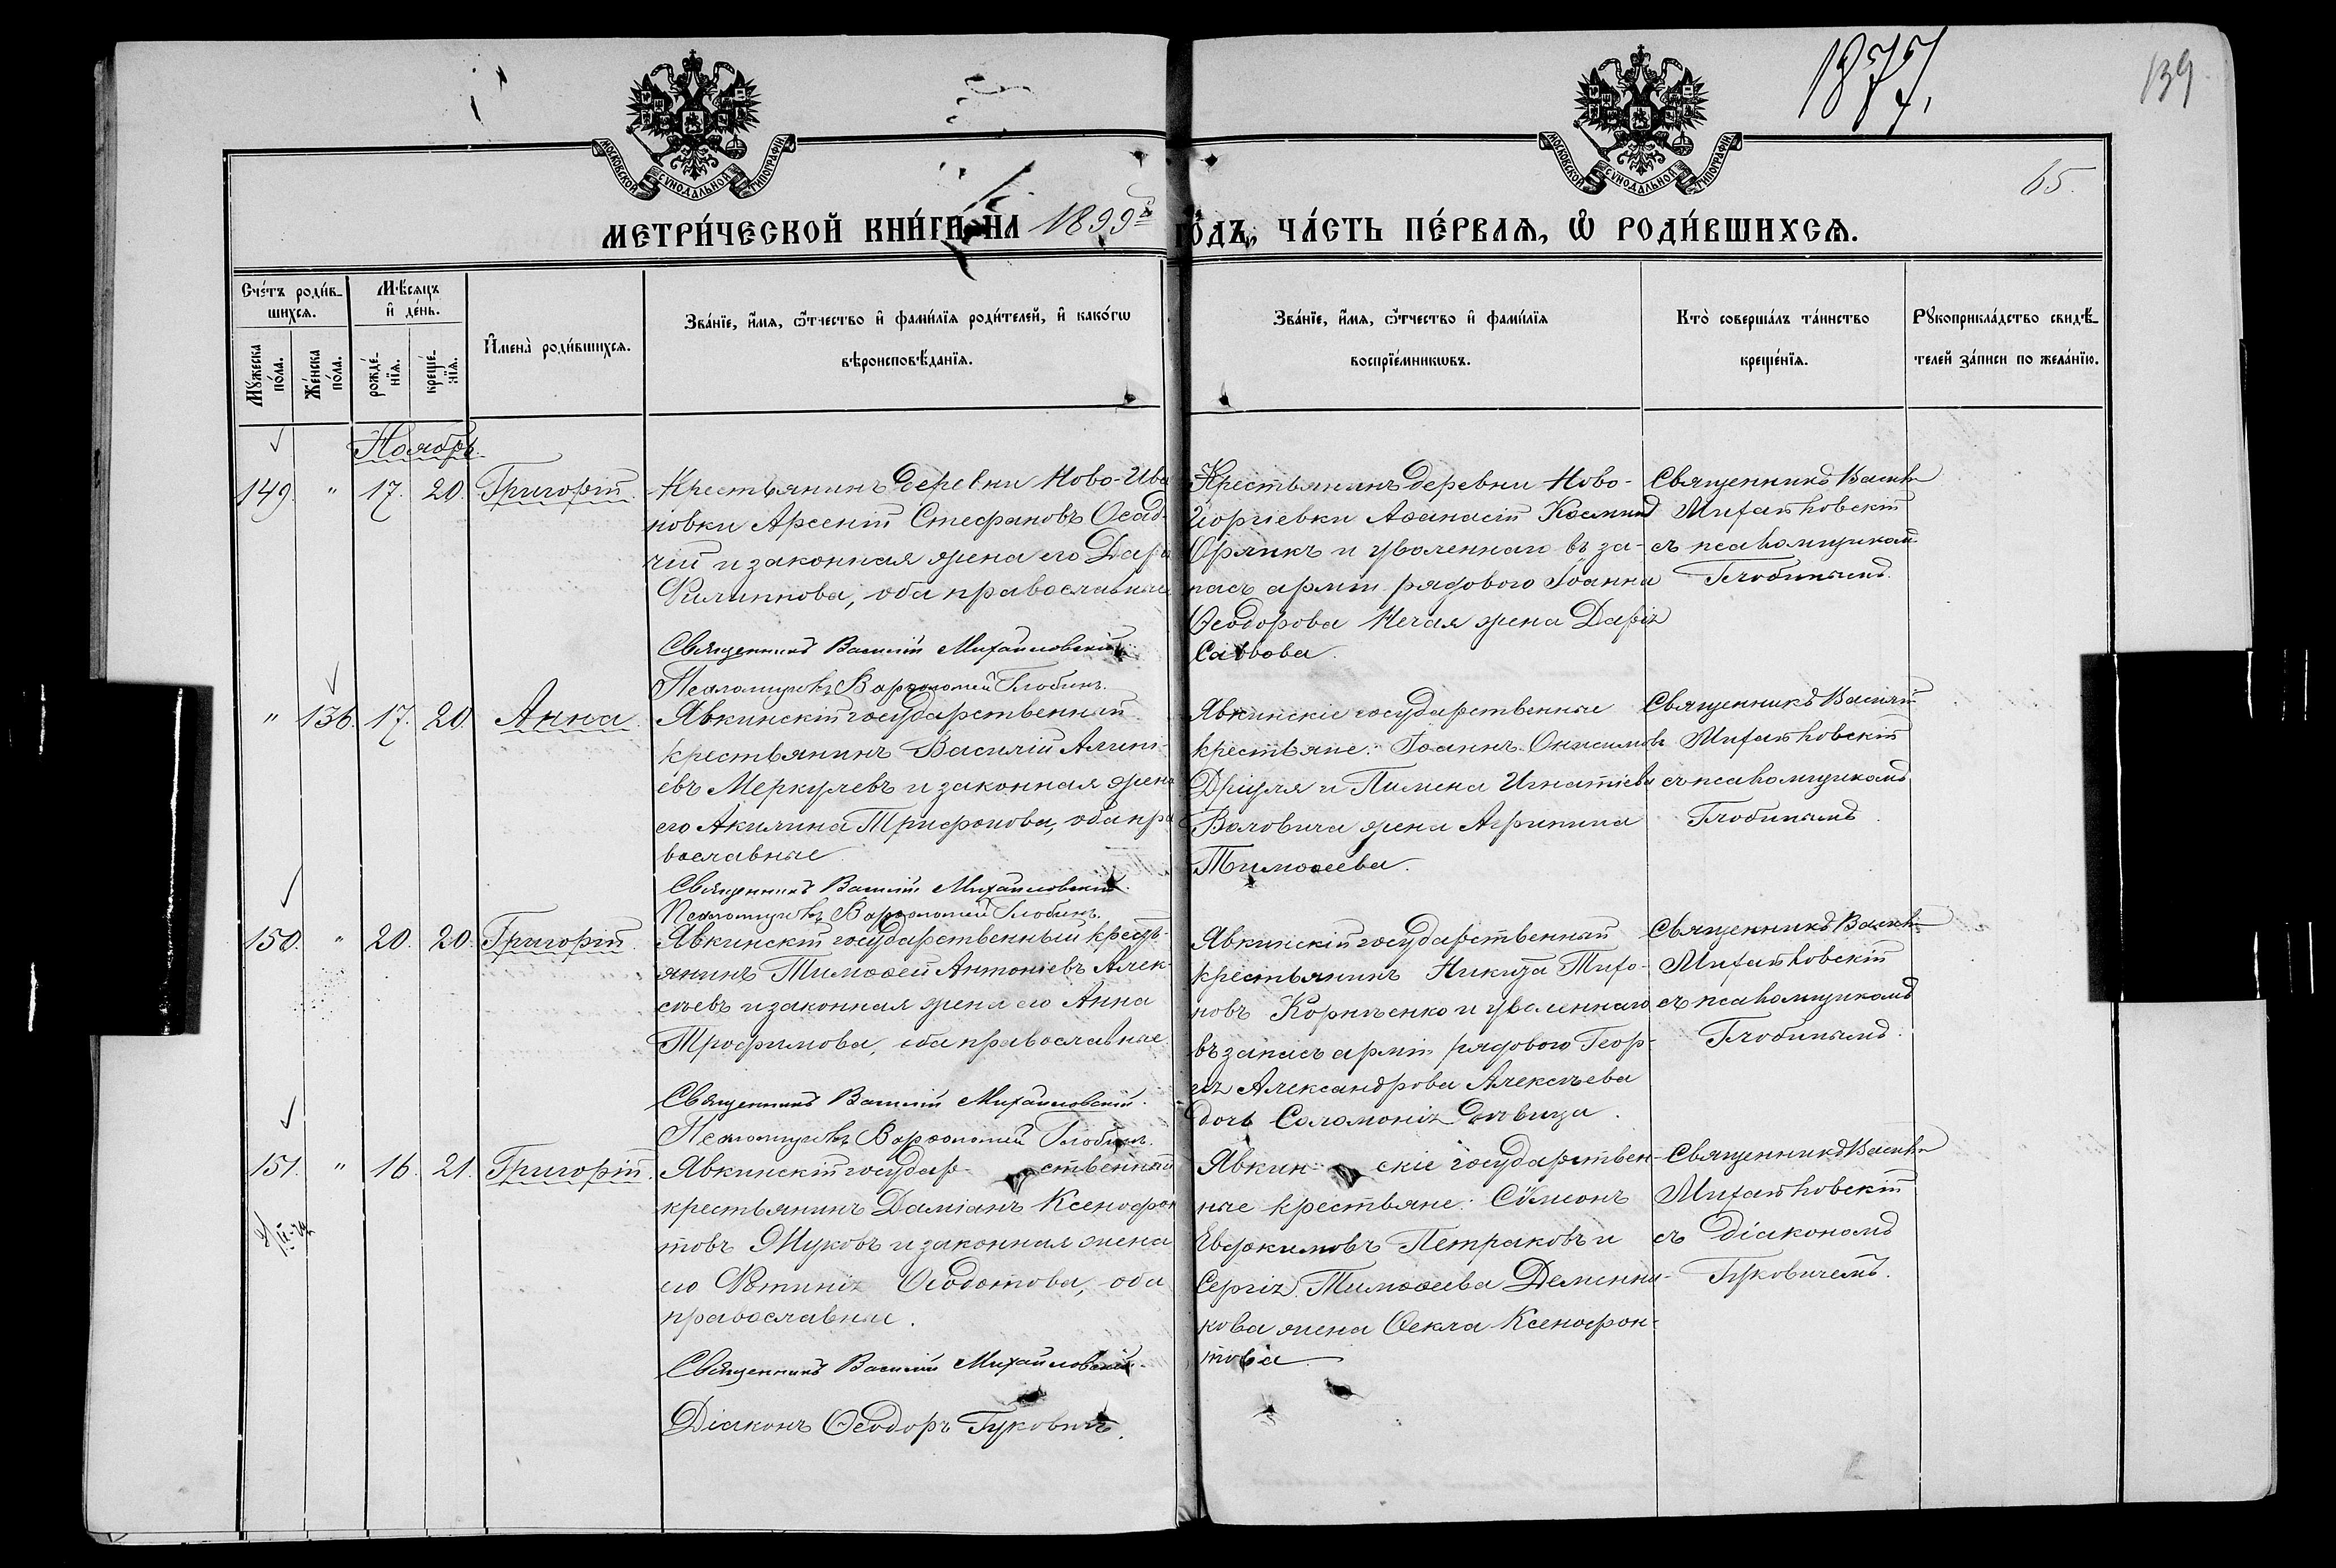 1877,
139
65.
МОСКОВСКОЙ СѴНОДАЛЬНОЙ ТИПОГРАФІИ
МОСКОВСКОЙ СѴНОДАЛЬНОЙ ТИПОГРАФІИ
МЕТРИ́ЧЕСКОЙ КНИ́ГИ НА 1899й ГО́ДЪ, ЧА́СТЬ ПЕ́РВАѦ, Ѡ РОДИ́ВШИХСѦ.
Сче́тъ роди́в-
шихсѧ.
Мꙋ́жеска по́ла.
Же́нска по́ла.
Мѣ́сѧцъ
и҆ де́нь.
рожде́-нїѧ.
креще́-нїѧ.
И҆мена̀ роди́вшихсѧ.
Зва́нїе, и҆́мѧ, ѻ҆́тчество и҆ фами́лїѧ роди́телей, и҆ како́гѡ
вѣроисповѣ́данїѧ.
Зва́нїе, и҆́мѧ, ѻ҆́тчество и҆ фами́лїѧ
воспрїе́мникѡвъ.
Кто̀ соверша́лъ та́инство
креще́нїѧ.
Рꙋкоприкла́дство свидѣ́-
телей за́писи по жела́нїю.
Ноябрь.
149. " 17. 20. Григорій.
Крестьянинъ деревни Ново-Ива
новки Арсеній Стефановъ Осад-
чій и законная жена его Дарія
Филиппова, оба православные
Священникъ Василій Михайловскій.
Псаломщикъ Варѳоломей Глобинъ.
Крестьянинъ деревни Ново-
Георгіевки Аѳанасій Космин
Орликъ и уволеннаго въ за-
пасъ арміи рядового Іоанна
Ѳеодорова Нечая жена Дарія
Саввова.
Священникъ Василій
Михайловскій
съ псаломщикомъ
Глобинымъ.
" 136. 17. 20. Анна.
Явкинскій государственный
крестьянинъ Василій Алипі-
евъ Меркулевъ и законная жена
его Акилина Трифонова, оба пра
вославные.
Священникъ Василій Михайловскій.
Псаломщикъ Варѳоломей Глобинъ.
Явкинскіе государственные
крестьяне: Іоаннъ Онисимовъ
и Пимена Игнатіева
Воловича жена Агрипина
Тимоѳеева.
Священникъ Василій
Михайловскій
съ псаломщикомъ
Глобинымъ.
150. " 20. 20. Григорій.
Явкинскій государственный кресть-
янинъ Тимоѳей Антоніевъ Алек-
сѣевъ и законная жена его Анна
Трофимова, оба православные.
Священникъ Василій Михайловскій.
Псаломщикъ Варѳоломей Глобинъ.
Явкинскій государственный
крестьянинъ Никита Тихо-
новъ Корніенко и уволеннаго
въ запасъ арміи рядового Геор-
гія Александрова Алексѣева
дочь Соломонія дѣвица.
Священникъ Василій
Михайловскій
съ псаломщикомъ
Глобинымъ.
151. " 16. 21. Григорій.
Явкинскій государ- ственный
крестьянинъ Даміанъ Ксенофон
товъ Жуковъ и законная жена
его Фотинія Ѳеодотова, оба
православные.
Священникъ Василій Михайловскій.
Діаконъ Ѳеодоръ Гуковичъ.
Явкин- скіе государствен-
ные крестьяне: Сѷмеонъ
Евдокимовъ Петраковъ и
Сергія Тимоѳеева Деменни-
кова жена Ѳекла Ксенофон-
това.
Священникъ Василій
Михайловскій
съ діакономъ
Гуковичемъ.